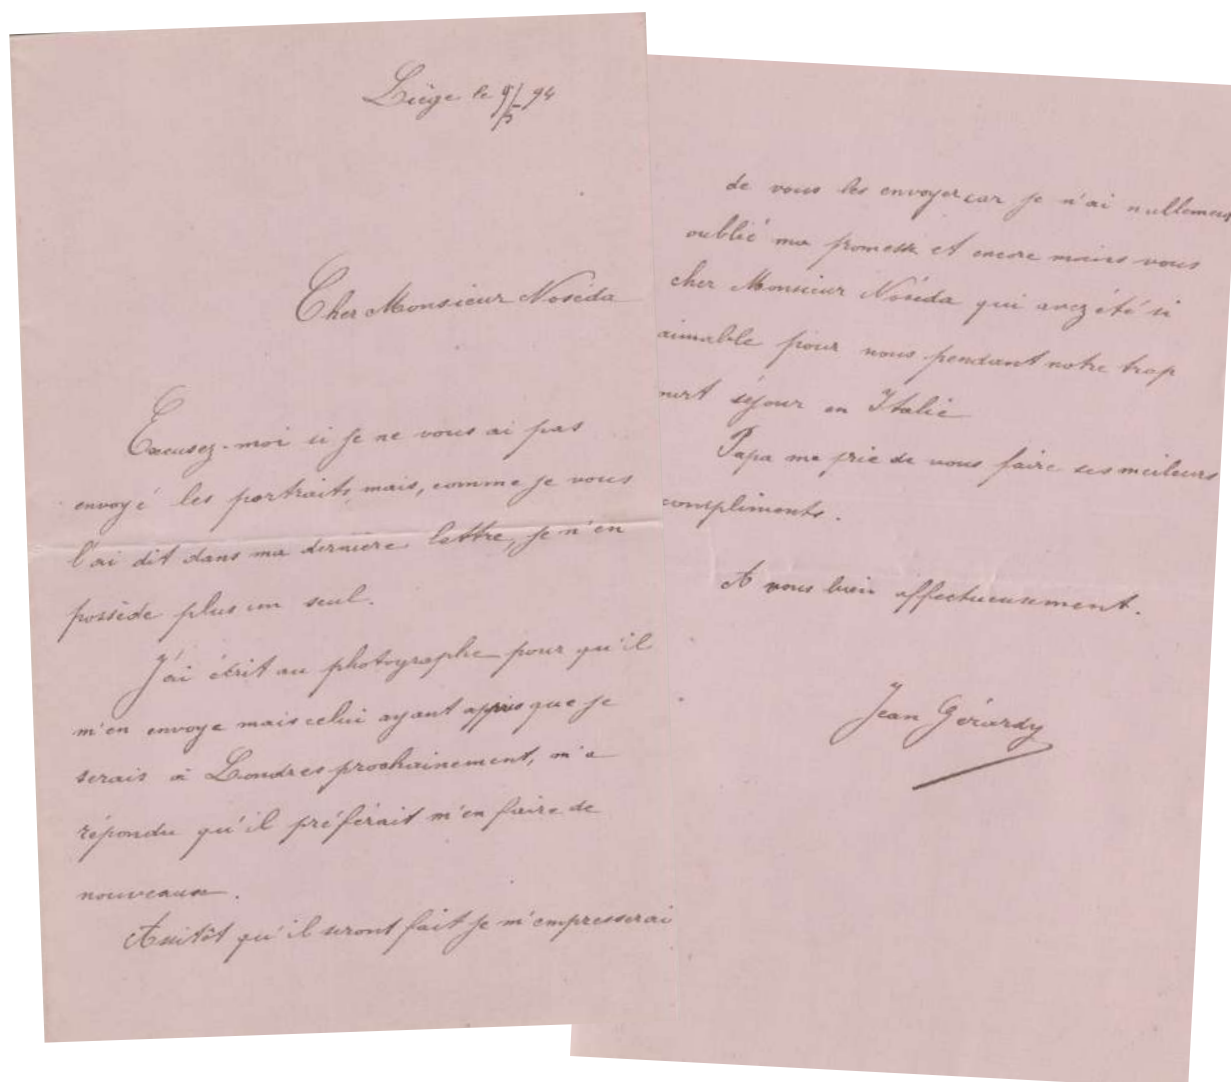 Liège le 9/5 94
Cher Monsieur Noséda
Excusez-moi si je ne vous ai pas
envoyé les portraits, mais, comme je vous
l'ai dit dans ma dernière lettre, je n'en
possède plus un seul.
J'ai écrit au photographe pour qu'il
m'en envoye mais celui ayant appris que je
serais à Londres prochainement, m'a
répondu qu'il préférait m'en faire de
nouveaux.
Assitôt qu'il seront fait je m'empresserai
de vous les envoyer car je n'ai nullement
oublié ma promesse et encore moins vous
cher Monsieur Noséda qui avez été si
aimable pour nous pendant notre trop
court séjour en Italie
Papa me prie de vous faire ses meileurs
compliments.
A vous bien affectueusement.
Jean Gérardy